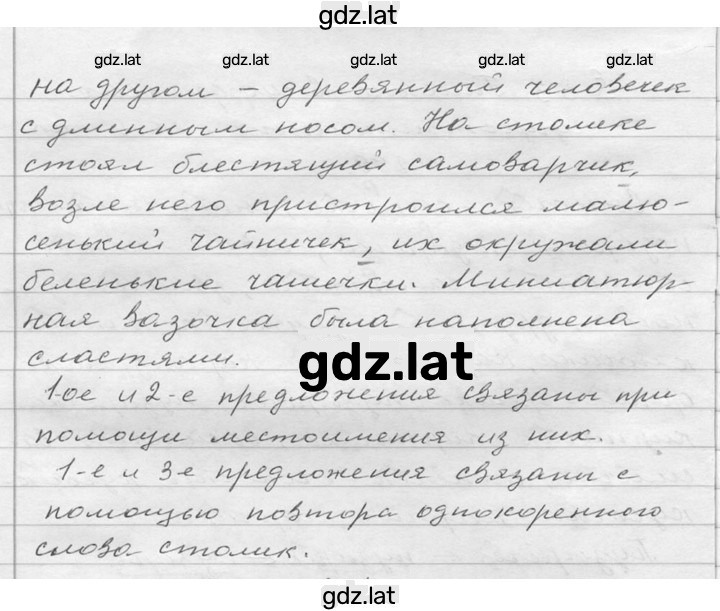 gdz.lat
gdz.lat gdz.lat gdz.lat gdz.lat gdz.lat
на другом – деревянный человечек
с длинным носом. На столике
стоял блестящий самоварчик,
возле него пристроился малю-
сенький чайничек, их окружали
беленькие чашечки. Миниатюр-
ная вазочка была наполнена
сластями.
gdz.lat
1-ое и 2-е предложения связаны при
помощи местоимения из них.
1-е и 3-е предложения связаны с
помощью повтора однокоренного
слова столик.
gdz.lat